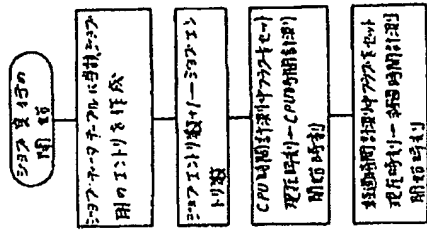 ジョブ実行の
開始
ジョブ・データテーブルに当該ジョブ
用のエントリを作成
ジョブエントリ数+1→ジョブエン
トリ数
CPU時間計測中フラグをセット
現在時刻→CPU時間計測
開始時刻
経過時間計測中フラグをセット
現在時刻→経過時間計測
開始時刻